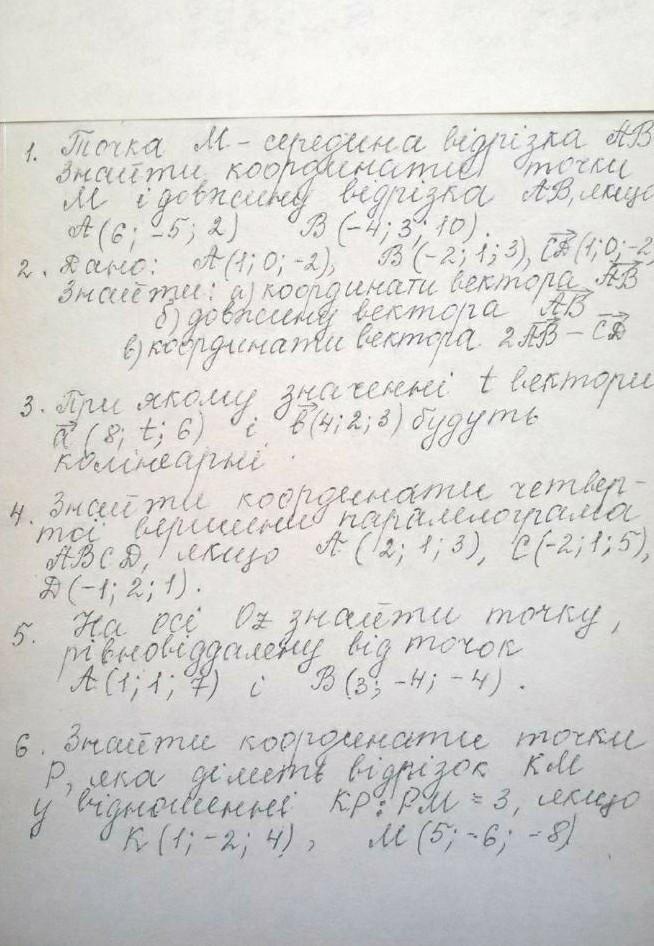 1. Точка М - середина відрізка АВ
Знайти координати точки
М і довжину відрізка АВ, якщо
А(6; -5; 2) В(-4; 3; 10).
2. Дано: А(1; 0; -2), В(-2; 1; 3), CD(1; 0; -2)
Знайти: а) координати вектора АВ
б) довжину вектора АВ
в) координати вектора 2АВ - CD
3. При якому значенні t вектори
а (8; t; 6) і в(4; 2; 3) будуть
колінеарні.
4. Знайти координати четвер-
тої вершини паралелограма
АВСD, якщо А(2; 1; 3), С(-2; 1; 5),
D(-1; 2; 1).
5. На осі Oz знайти точку,
рівновіддалену від точок
А(1; 1; 7) і В(3; -4; -4).
6. Знайти координати точки
Р, яка ділить відрізок КМ
у відношенні КР : РМ = 3, якщо
К(1; -2; 4), М(5; -6; -8)